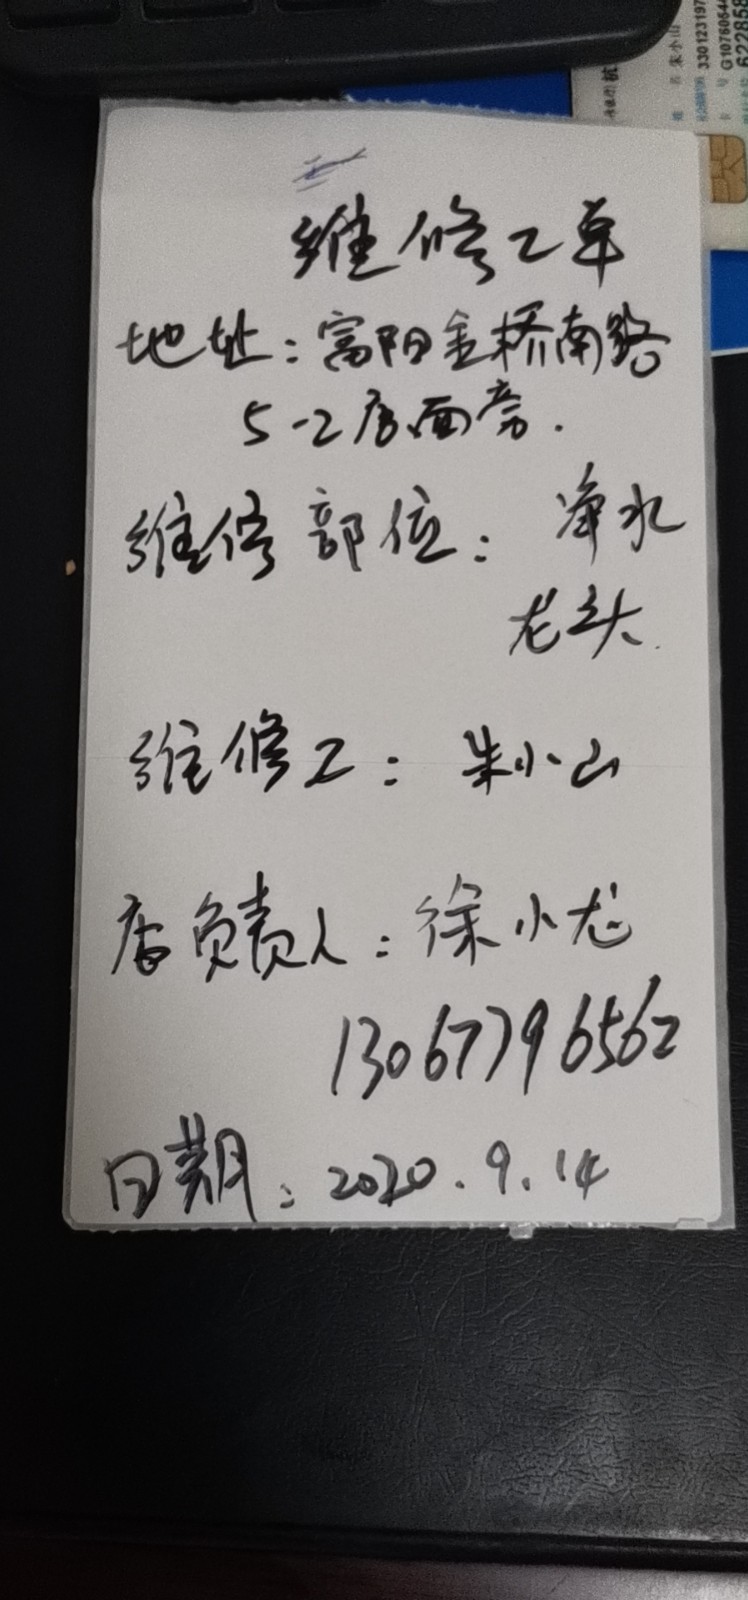 维修工单
地址：富阳金桥南路
5-2店面旁.
维修部位：净水
龙头.
维修工：朱小山
店负责人：徐小龙
13067796562
日期：2020.9.14
姓名 朱小山